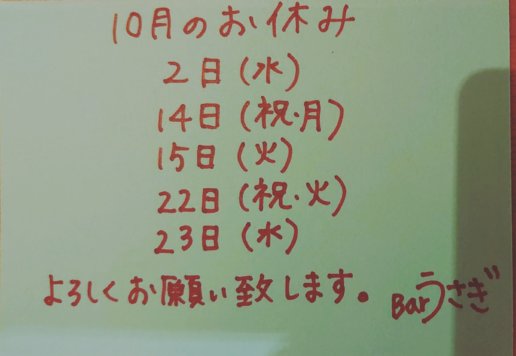 10月のお休み
2日(水)
14日(祝・月)
15日(火)
22日(祝・火)
23日(水)
よろしくお願い致します。 Barうさぎ